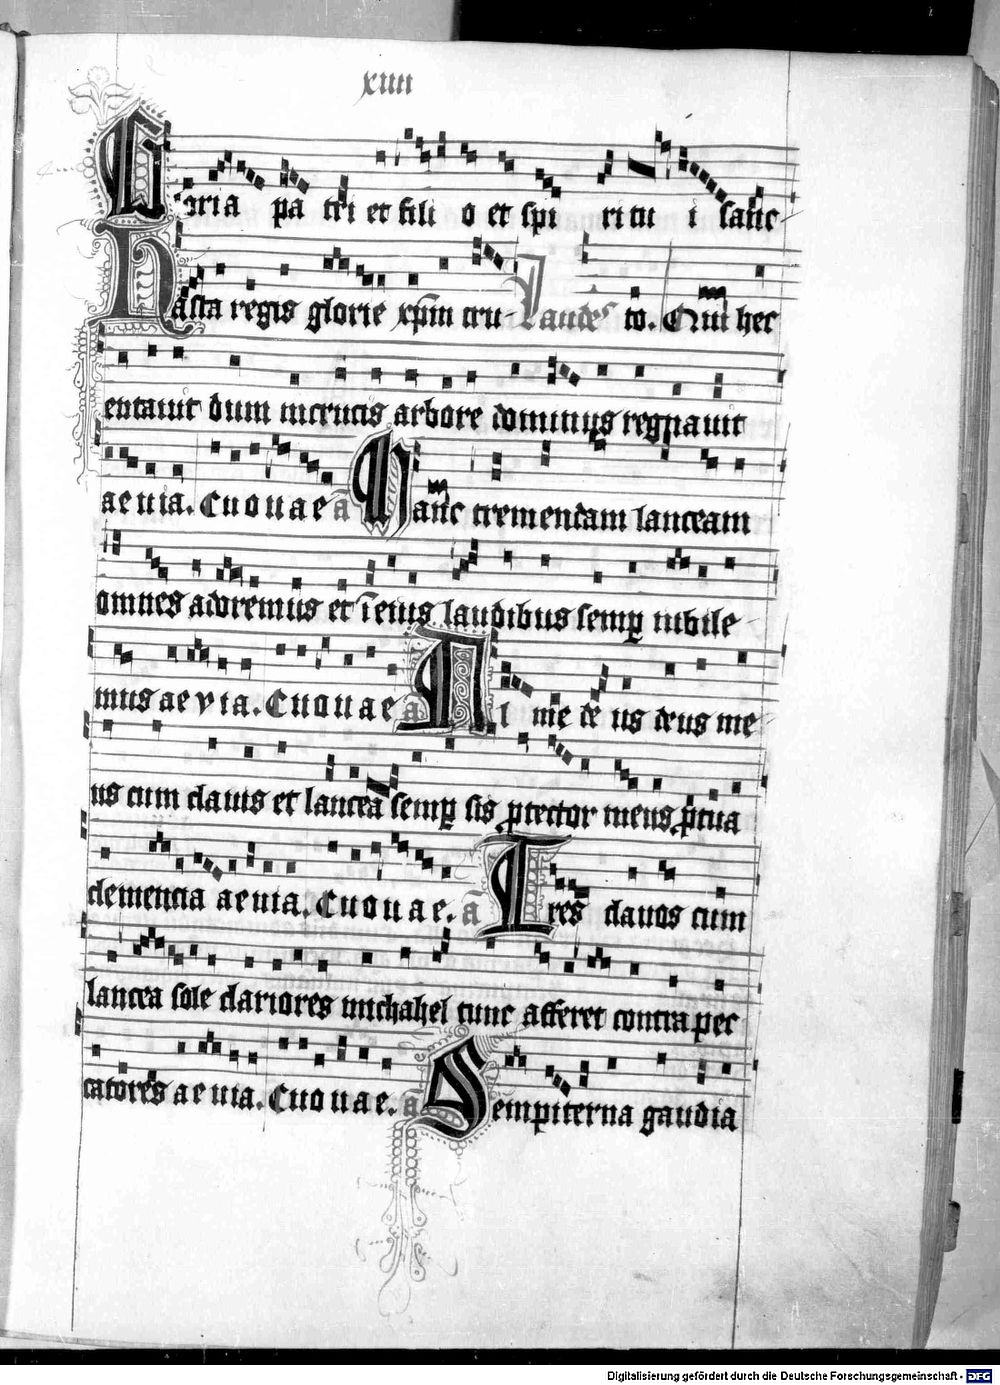 xiiii
Gloria pa tri et fili o et spi ritu i sanc-
Hasta regis glorie xpm cru- Laudes to. Qui hec
entauit dum in crucis arbore dominus regnauit
aeuia. Euouae a Hanc tremendam lanceam
omnes adoremus et i eius laudibus semp iubile
mus aevia. Euouae a Al me de us deus me
us cum clauis et lancea semp sis ptector meus ptua
clemencia aeuia. Euouae. a Tres clauos cum
lancea sole clariores michahel tunc afferet contra pec
catores aeuia. Euouae. a Sempiterna gaudia
Digitalisierung gefördert durch die Deutsche Forschungsgemeinschaft - DFG